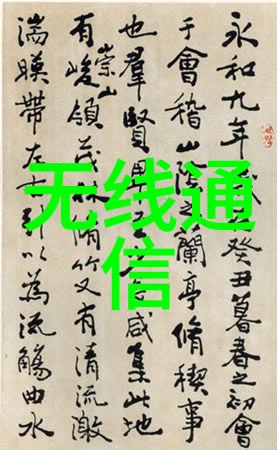 永和九年癸丑暮春之初會
于會稽山陰之蘭亭脩稧事
也羣賢畢咸集此地
有崇山峻領茂林脩竹又有清流激
湍暎帶左右引以為流觴曲水
无线通
信